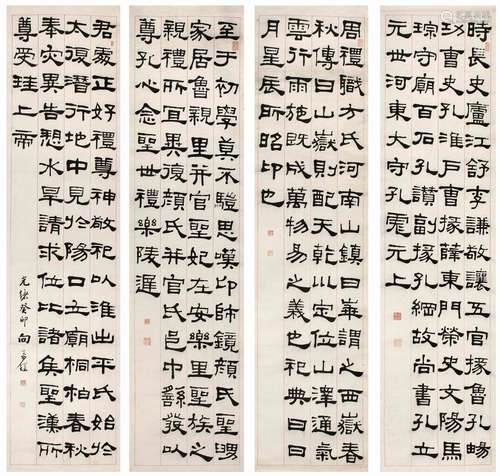 時長史廬江舒李謙敬讓五官掾孔暢
功曹史孔淮戶曹掾薛東門榮史文陽馬
琮守廟百石孔讚副掾孔綱故尚書孔立
元世河東大守孔彪元上
周禮職方氏河南山鎮曰華謂之西嶽春
秋傳曰山嶽則配天乾川定位山澤通氣
雲行雨施既成萬物易之義也祀典曰日
月星辰所昭卬也
至于初學莫不驩思嘆卬師鏡顏氏聖舅
家居魯親里并官聖妃在安樂里聖族之
親禮所宜異復顏氏并官氏邑中繇發以
尊孔心念聖世禮樂陵遲
君處正好禮尊神敬祀以淮出平氏始於
大復潛行地中見於陽口立廟桐柏春秋
奉灾異告愬水旱請求位比諸侯聖漢所
尊受珪上帝
光緒癸卯 向